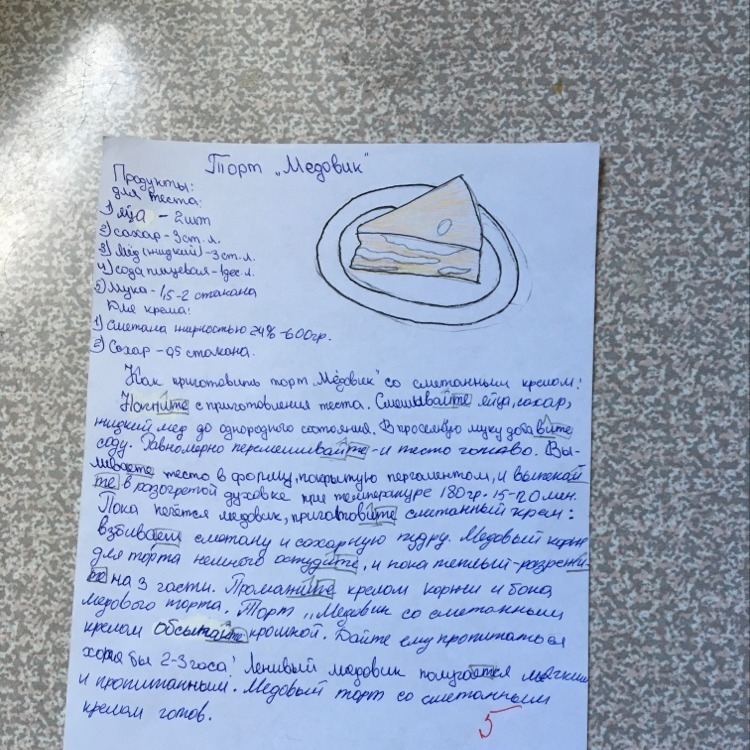 Торт „Медовик"
Продукты:
для теста:
1) яйца - 2 шт
2) сахар - 3 ст. л.
3) мёд (жидкий) - 3 ст. л.
4) сода пищевая - 1 дес. л.
5) мука - 1,5-2 стакана
Для крема:
1) Сметана жирностью 24% - 600гр.
2) Сахар - 0,5 стакана.
Как приготовить торт „Медовик" со сметанным кремом:
Начните с приготовления теста. Смешивайте яйца, сахар,
жидкий мед до однородного состояния. В просеяную муку добавьте
соду. Равномерно перемешивайте - и тесто готово. Вы-
ливаете тесто в форму, покрытую пергаментом, и выпекай
те в разогретой духовке при температуре 180 гр. 15-20 мин.
Пока печётся медовик, приготовьте сметанный крем:
взбиваем сметану и сахарную пудру. Медовый корж
для торта немного остудите, и пока теплый - разрежь
те на 3 части. Промажьте кремом коржи и бока
медового торта. Торт „Медовик со сметанным
кремом обсыпайте крошкой. Дайте ему пропитаться
хотя бы 2-3 часа! Ленивый медовик получается мягким
и пропитанным. Медовый торт со сметанным
кремом готов.
5